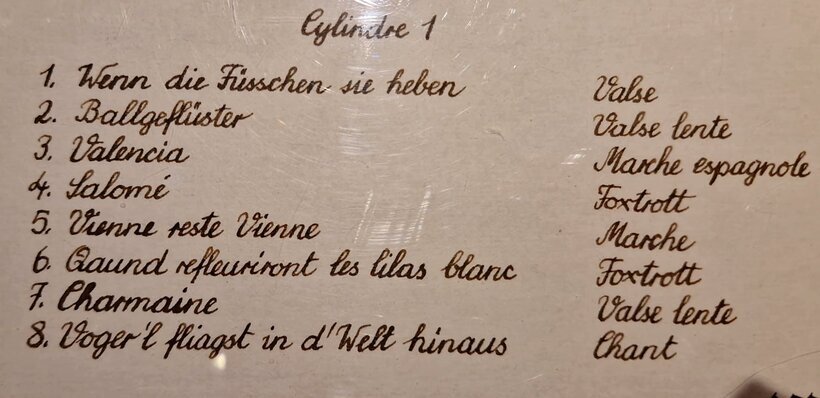 Cylindre 1
1. Wenn die Füsschen sie heben Valse
2. Ballgeflüster Valse lente
3. Valencia Marche espagnole
4. Salomé Foxtrott
5. Vienne reste Vienne Marche
6. Qaund refleuriront les lilas blanc Foxtrott
7. Charmaine Valse lente
8. Voger'l fliagst in d'Welt hinaus Chant